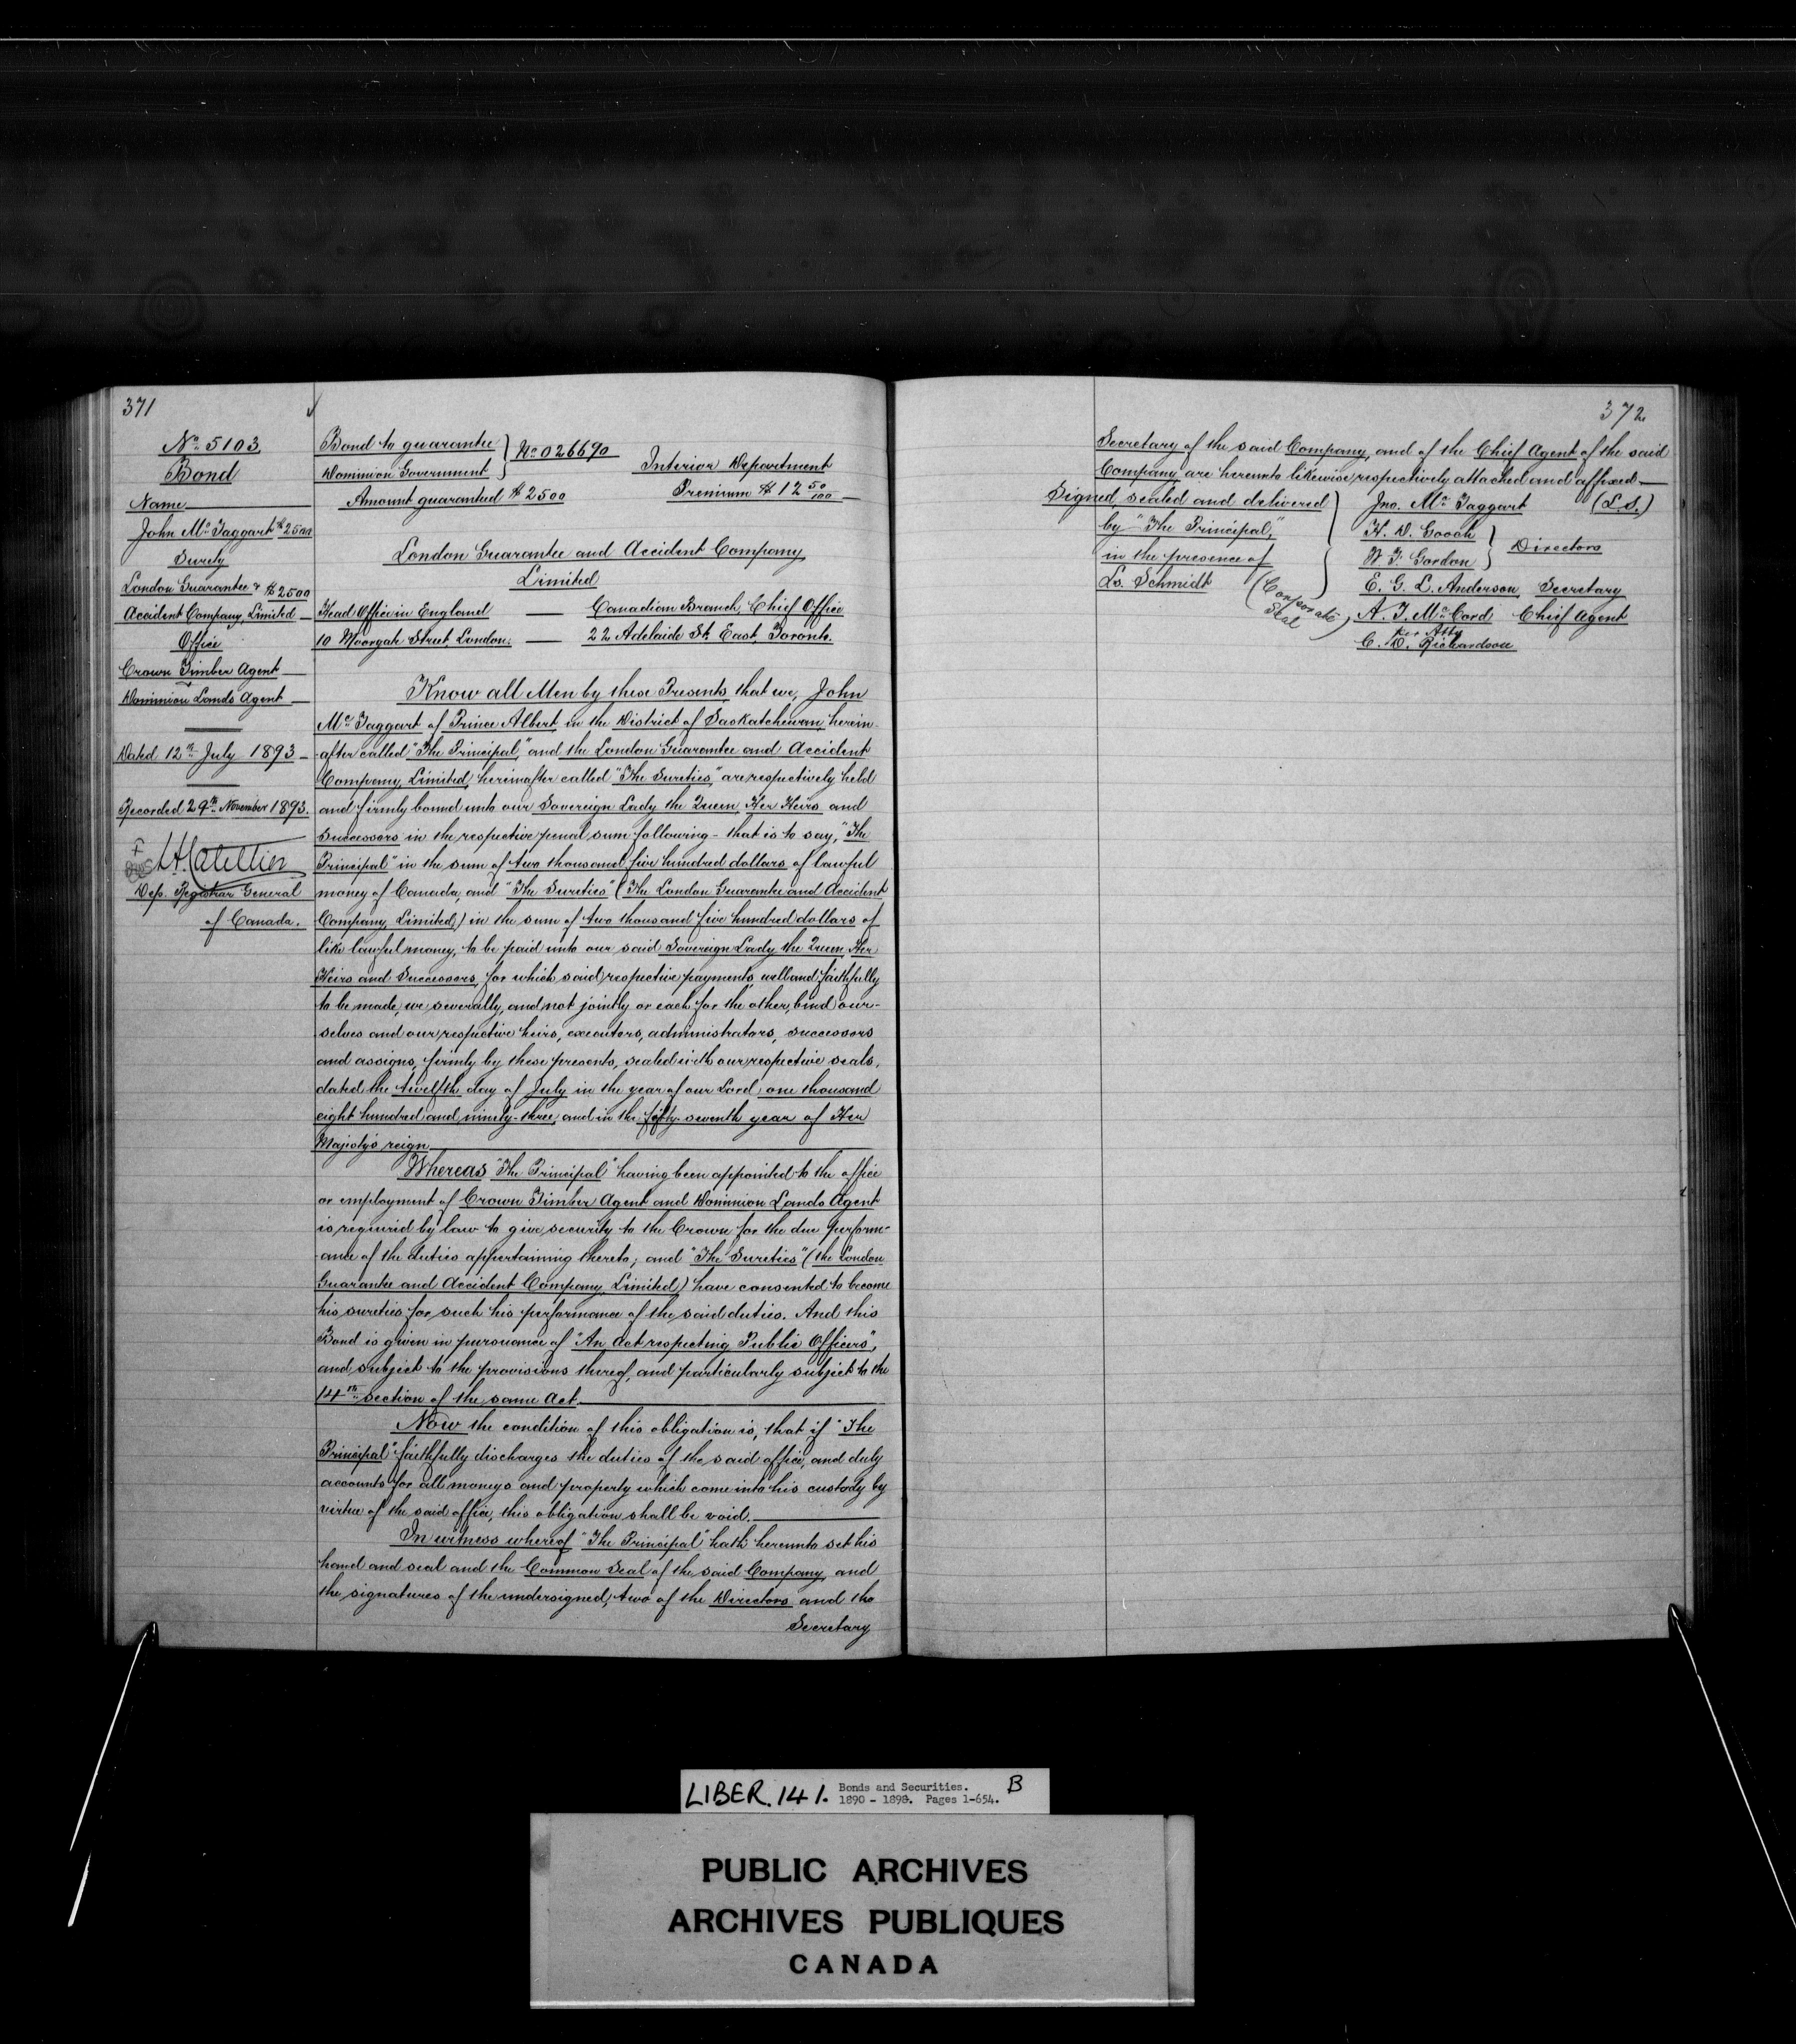 371
No. 5103
Bond
Name
John McTaggart $2500
Surety
London Guarantee & $2500
Accident Company, Limited
Office
Crown Timber Agent
Dominion Lands Agent
Dated 12th July 1893
Recorded 29th November 1893.
Dep. Registrar General
of Canada.
Bond to guarantee
Dominion Government
No 026690
Interior Department
Amount guaranteed $2500
Premium $12 50/100
London Guarantee and Accident Company
Limited
Head Office in England — Canadian Branch, Chief Office
10 Moorgate Street, London. — 22 Adelaide St. East, Toronto.
Know all Men by these Presents that we, John
McTaggart of Prince Albert in the District of Saskatchewan, herein-
after called "The Principal," and the London Guarantee and Accident
Company, Limited, hereinafter called "The Sureties," are respectively held
and firmly bound unto our Sovereign Lady the Queen, Her Heirs and
Successors in the respective penal sum following - that is to say, "The
Principal" in the sum of two thousand five hundred dollars of lawful
money of Canada, and "The Sureties" (The London Guarantee and Accident
Company, Limited,) in the sum of two thousand five hundred dollars of
like lawful money, to be paid unto our said Sovereign Lady the Queen, Her
Heirs and Successors, for which said respective payments, well and faithfully
to be made, we severally, and not jointly or each for the other, bind our-
selves and our respective heirs, executors, administrators, successors
and assigns, firmly by these presents, sealed with our respective seals,
dated the twelfth day of July in the year of our Lord, one thousand
eight hundred and ninety-three, and in the fifty-seventh year of Her
Majesty's reign
Whereas "The Principal" having been appointed to the office
or employment of Crown Timber Agent and Dominion Lands Agent
is required by law to give security to the Crown for the due perform-
ance of the duties appertaining thereto; and "The Sureties" (the London
Guarantee and Accident Company, Limited) have consented to become
his sureties for such his performance of the said duties. And this
Bond is given in pursuance of "An Act respecting Public Officers",
and subject to the provisions thereof, and particularly subject to the
14th section of the same Act.
Now the condition of this obligation is, that if "The
Principal" faithfully discharges the duties of the said office, and duly
accounts for all moneys and property which come into his custody by
virtue of the said office, this obligation shall be void.
In witness whereof "The Principal" hath hereunto set his
hand and seal and the Common Seal of the said Company, and
the signatures of the undersigned, two of the Directors and the
Secretary
372
Secretary of the said Company, and of the Chief Agent of the said
Company are hereunto likewise respectively attached and affixed.
Signed, sealed and delivered
by "The Principal,"
in the presence of
Ls. Schmidt
(Corporate Seal)
Jno. McTaggart (L.S.)
H. D. Gooch
W. T. Gordon
Directors
E. G. L. Anderson, Secretary
A. T. McCord Chief Agent
per Atty
C. D. Richardson
LIBER. 141. Bonds and Securities. B
1890 - 1898. Pages 1-654.
PUBLIC ARCHIVES
ARCHIVES PUBLIQUES
CANADA